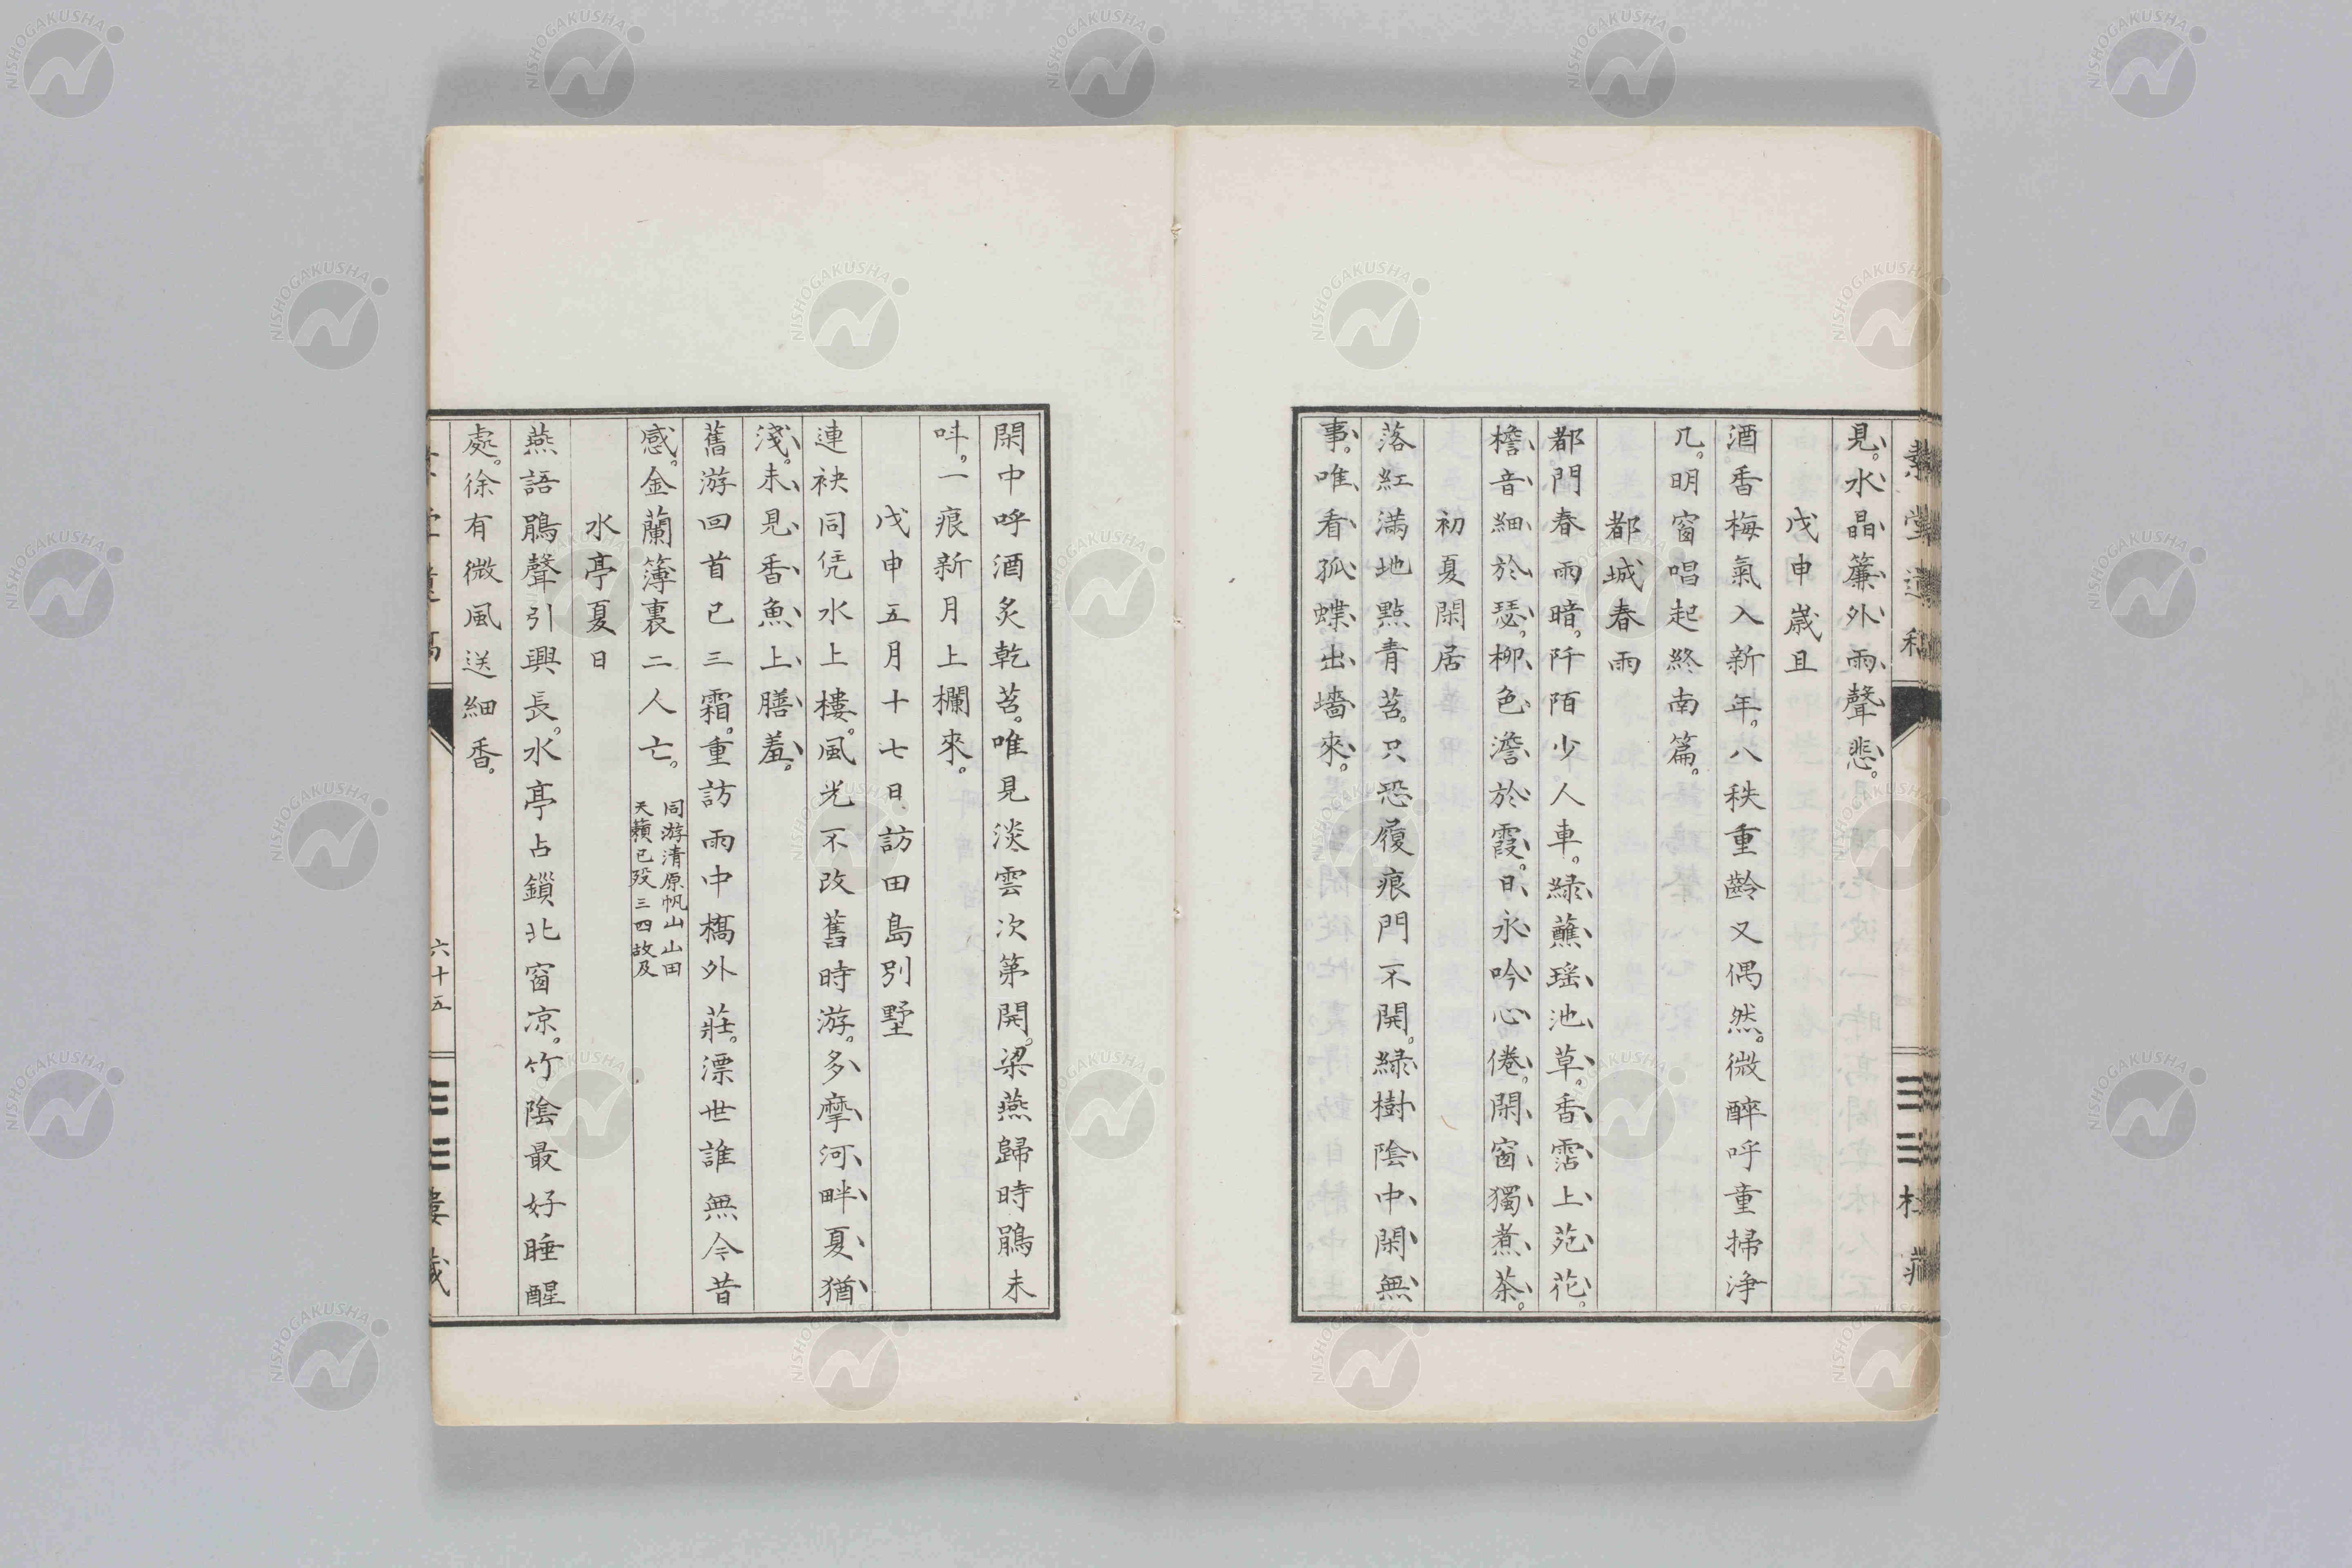 見。水晶簾外雨聲悲。
戊申歲旦
酒香梅氣入新年。八秩重齡又偶然。微醉呼童掃淨
几。明窗唱起終南篇。
都城春雨
都門春雨暗。阡陌少人車。綠蘸瑤池草。香霑上苑花。
檐音細於瑟。柳色澹於霞。日永吟心倦。閑窗獨煮茶。
初夏閑居
落紅滿地點青苔。只恐履痕門不開。綠樹陰中閑無
事。唯看孤蝶出墻來。
閑中呼酒炙乾苔。唯見淡雲次第開。梁燕歸時鵑未
叫。一痕新月上欄來。
戊申五月十七日訪田島別墅
連袂同凭水上樓。風光不改舊時游。多摩河畔夏猶
淺。未見香魚上膳羞。
舊游回首已三霜。重訪雨中橋外莊。漂世誰無今昔
感。金蘭簿裏二人亡。
同游清原帆山山田
天籟已歿三四故及
水亭夏日
燕語鵑聲引興長。水亭占鎖北窗凉。竹陰最好睡醒
處。徐有微風送細香。
六十五
NISHOGAKUSHA